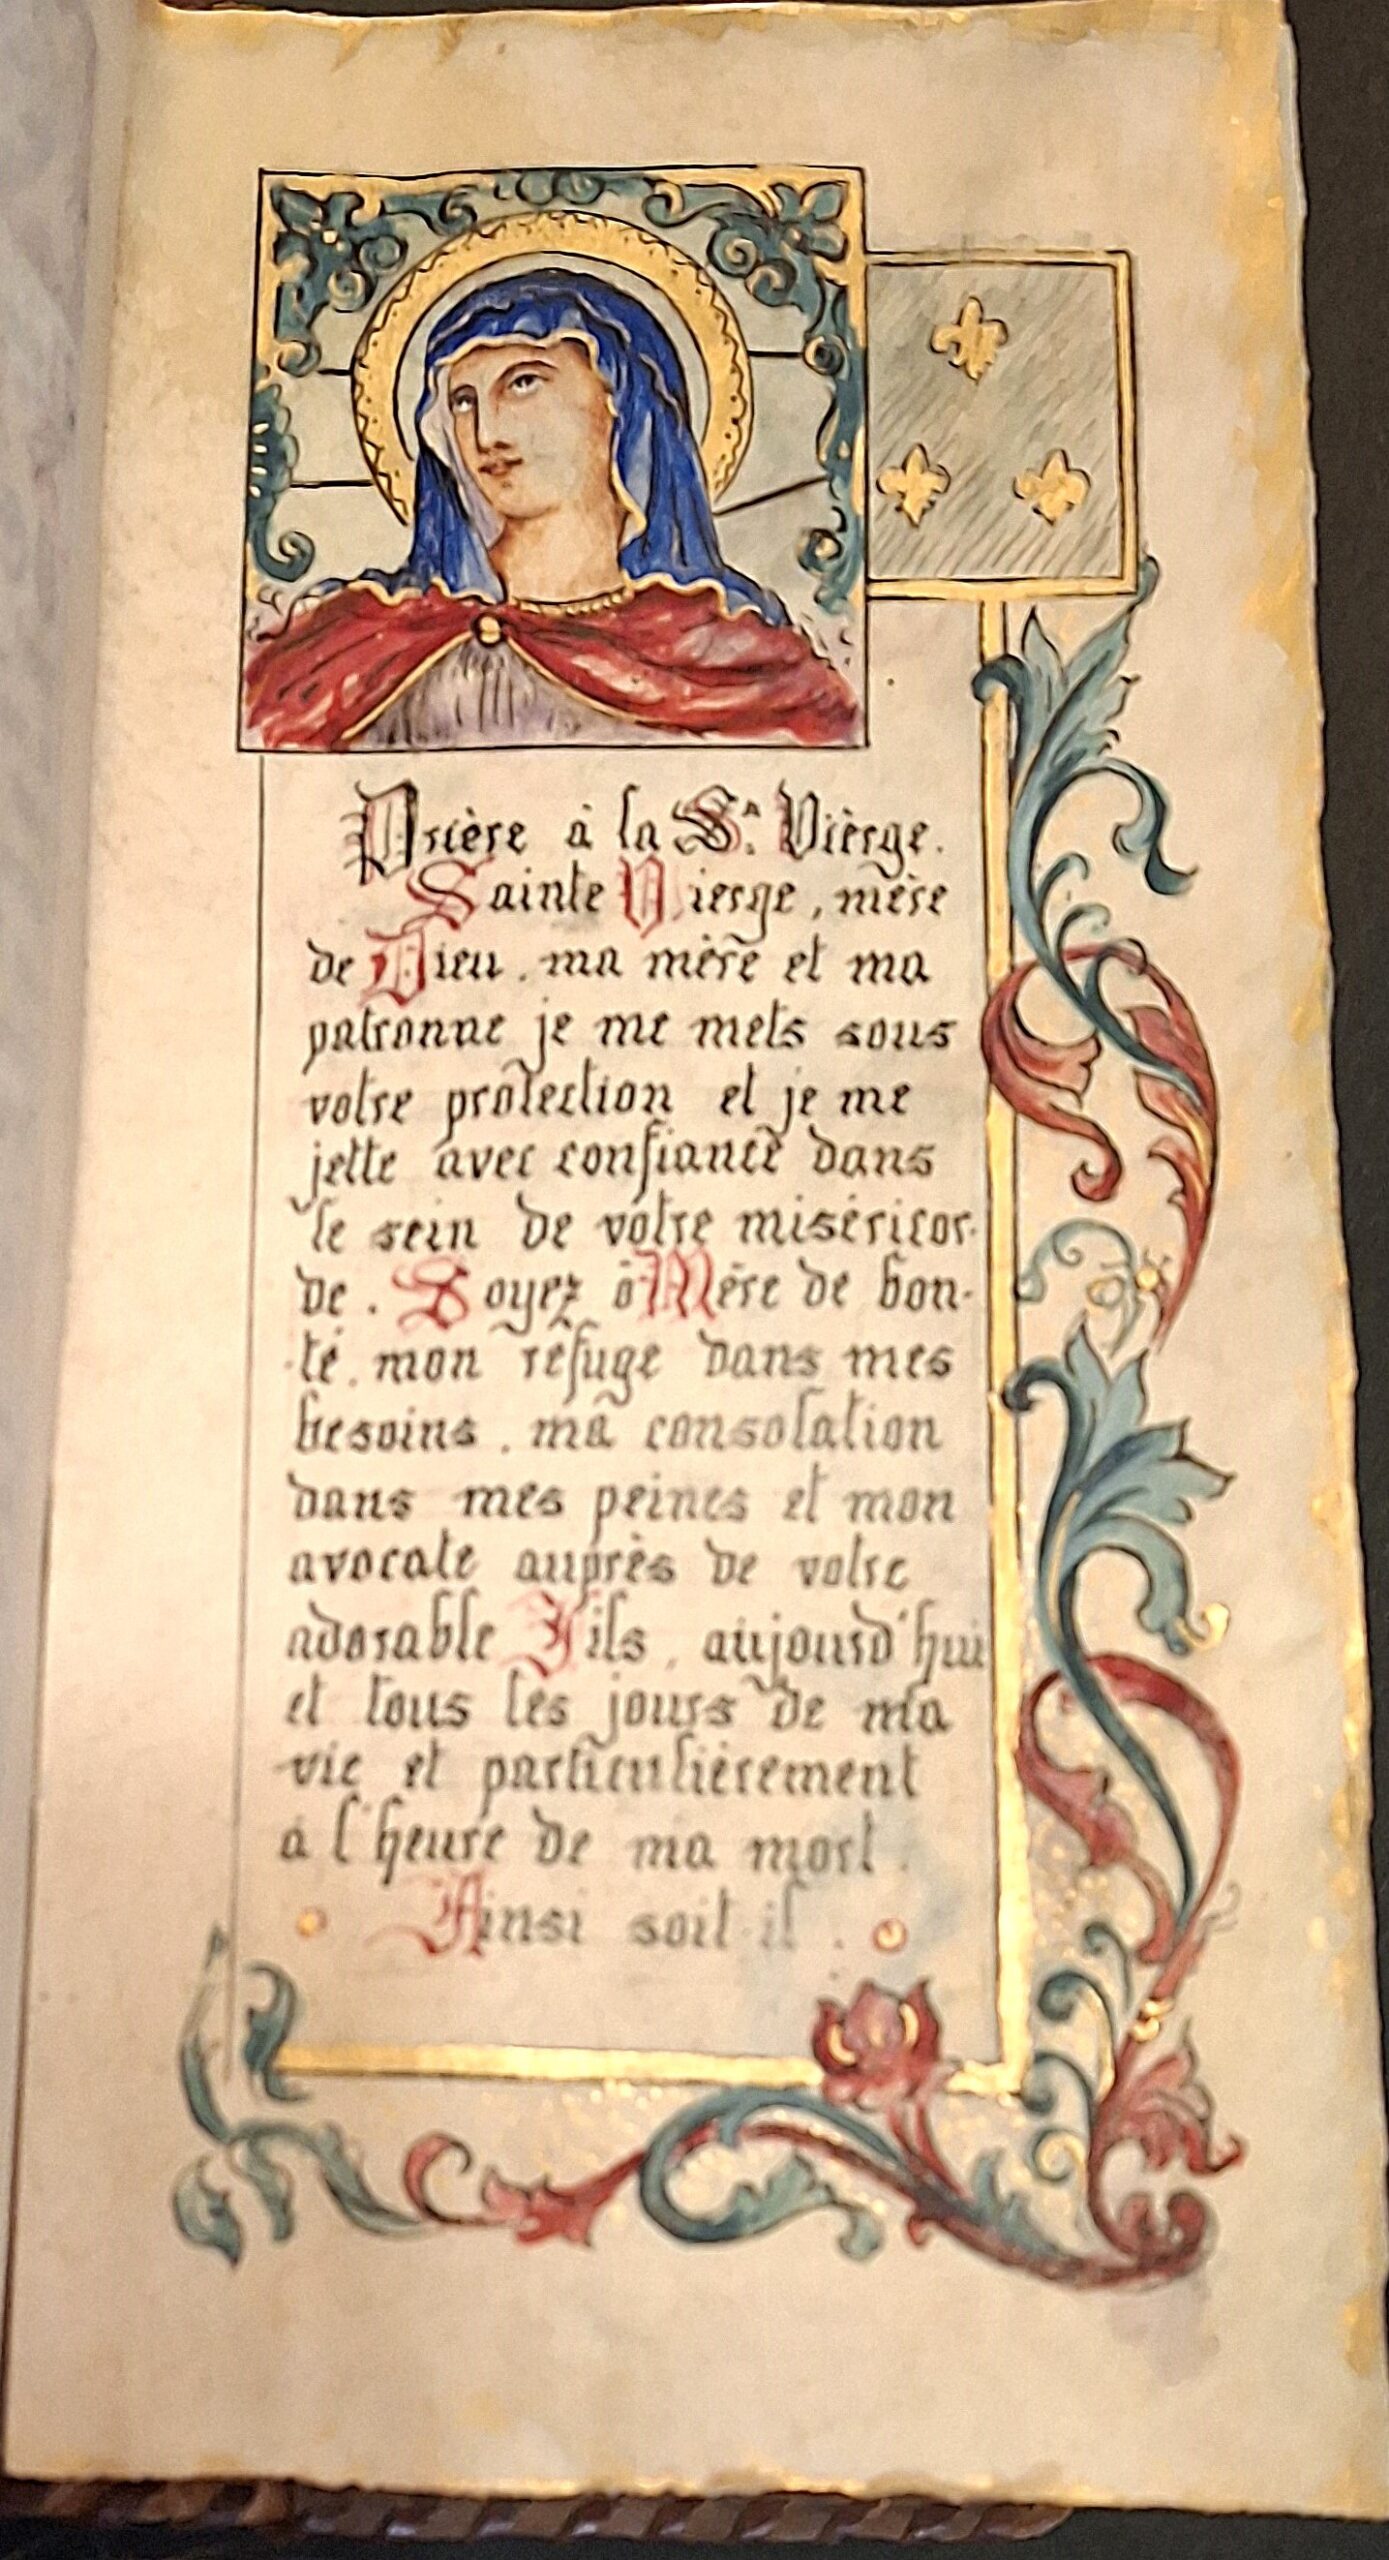 Prière à la Sᴬ. Vièrge.
Sainte Vierge, mère
de Dieu, ma mère et ma
patronne je me mets sous
votre protection et je me
jette avec confiance dans
le sein de votre miséricor-
de. Soyez ô Mère de bon-
-té, mon refuge dans mes
besoins, ma consolation
dans mes peines et mon
avocate auprès de votre
adorable Fils, aujourd'hui
et tous les jours de ma
vie et particulièrement
à l'heure de ma mort.
Ainsi soit-il.